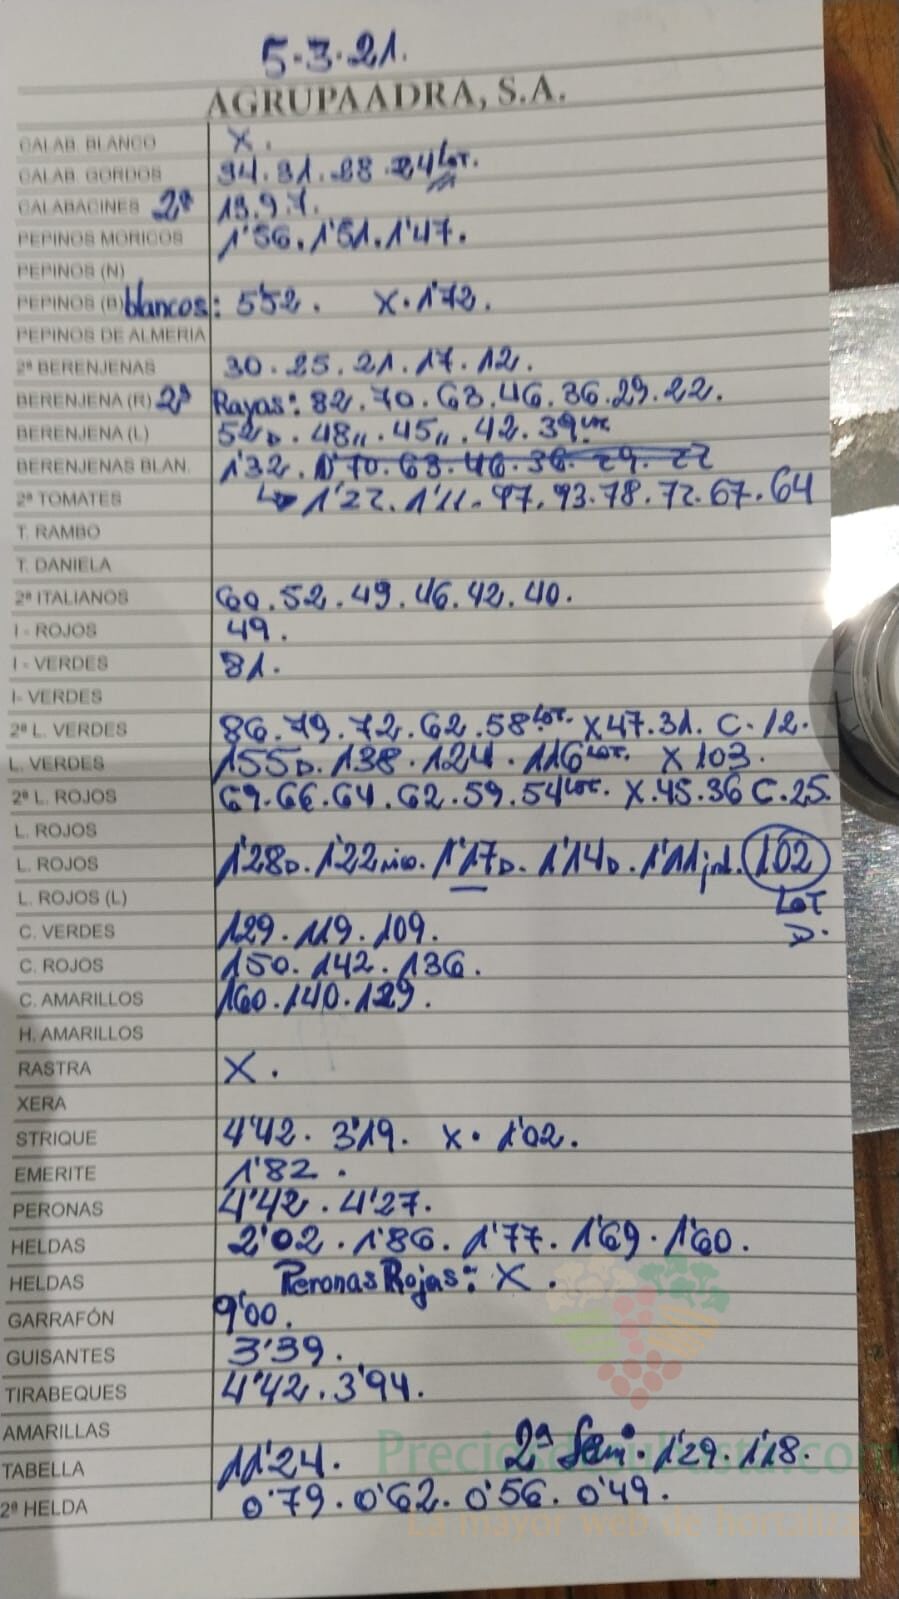 5.3.21.
AGRUPAADRA, S.A.
CALAB. BLANCO X.
CALAB. GORDOS 34.31.28.24 LOT.
CALABACINES 2ª 13.9.7.
PEPINOS MORICOS 1'56.1'51.1'47.
PEPINOS (N)
PEPINOS (B) blancos: 552. X.1'72.
PEPINOS DE ALMERIA
2ª BERENJENAS 30.25.21.17.12.
BERENJENA (R) 2ª Rayas: 82.70.63.46.36.29.22.
BERENJENA (L) 52D.48〃.45〃.42.39 LOT.
BERENJENAS BLAN. 1'32. 1'70.63.46.36.29.22
2ª TOMATES ↳ 1'22.1'11.97.93.78.72.67.64
T. RAMBO
T. DANIELA
2ª ITALIANOS 60.52.49.46.42.40.
I - ROJOS 49.
I - VERDES 81.
I- VERDES
2ª L. VERDES 86.79.72.62.58 LOT. X47.31. C.12.
L. VERDES 155D.138.124.116 LOT. X 103.
2ª L. ROJOS 69.66.64.62.59.54 LOT. X.45.36 C.25.
L. ROJOS
L. ROJOS 1'28D.1'22.1'17D.1'14D.1'11. 102
L. ROJOS (L) LOT
C. VERDES 129.119.109. D.
C. ROJOS 150.142.136.
C. AMARILLOS 160.140.129.
H. AMARILLOS
RASTRA X.
XERA
STRIQUE 4'42. 3'19. X. 1'02.
EMERITE 1'82.
PERONAS 4'42.4'27.
HELDAS 2'02.1'86.1'77.1'69.1'60.
HELDAS Peronas Rojas: X.
GARRAFÓN 9'00.
GUISANTES 3'39.
TIRABEQUES 4'42.3'94.
AMARILLAS
TABELLA 11'24. 2ª Semi. 1'29.1'18.
2ª HELDA 0'79.0'62.0'56.0'49.
Preciosdesubasta.com
La mayor web de hortalizas